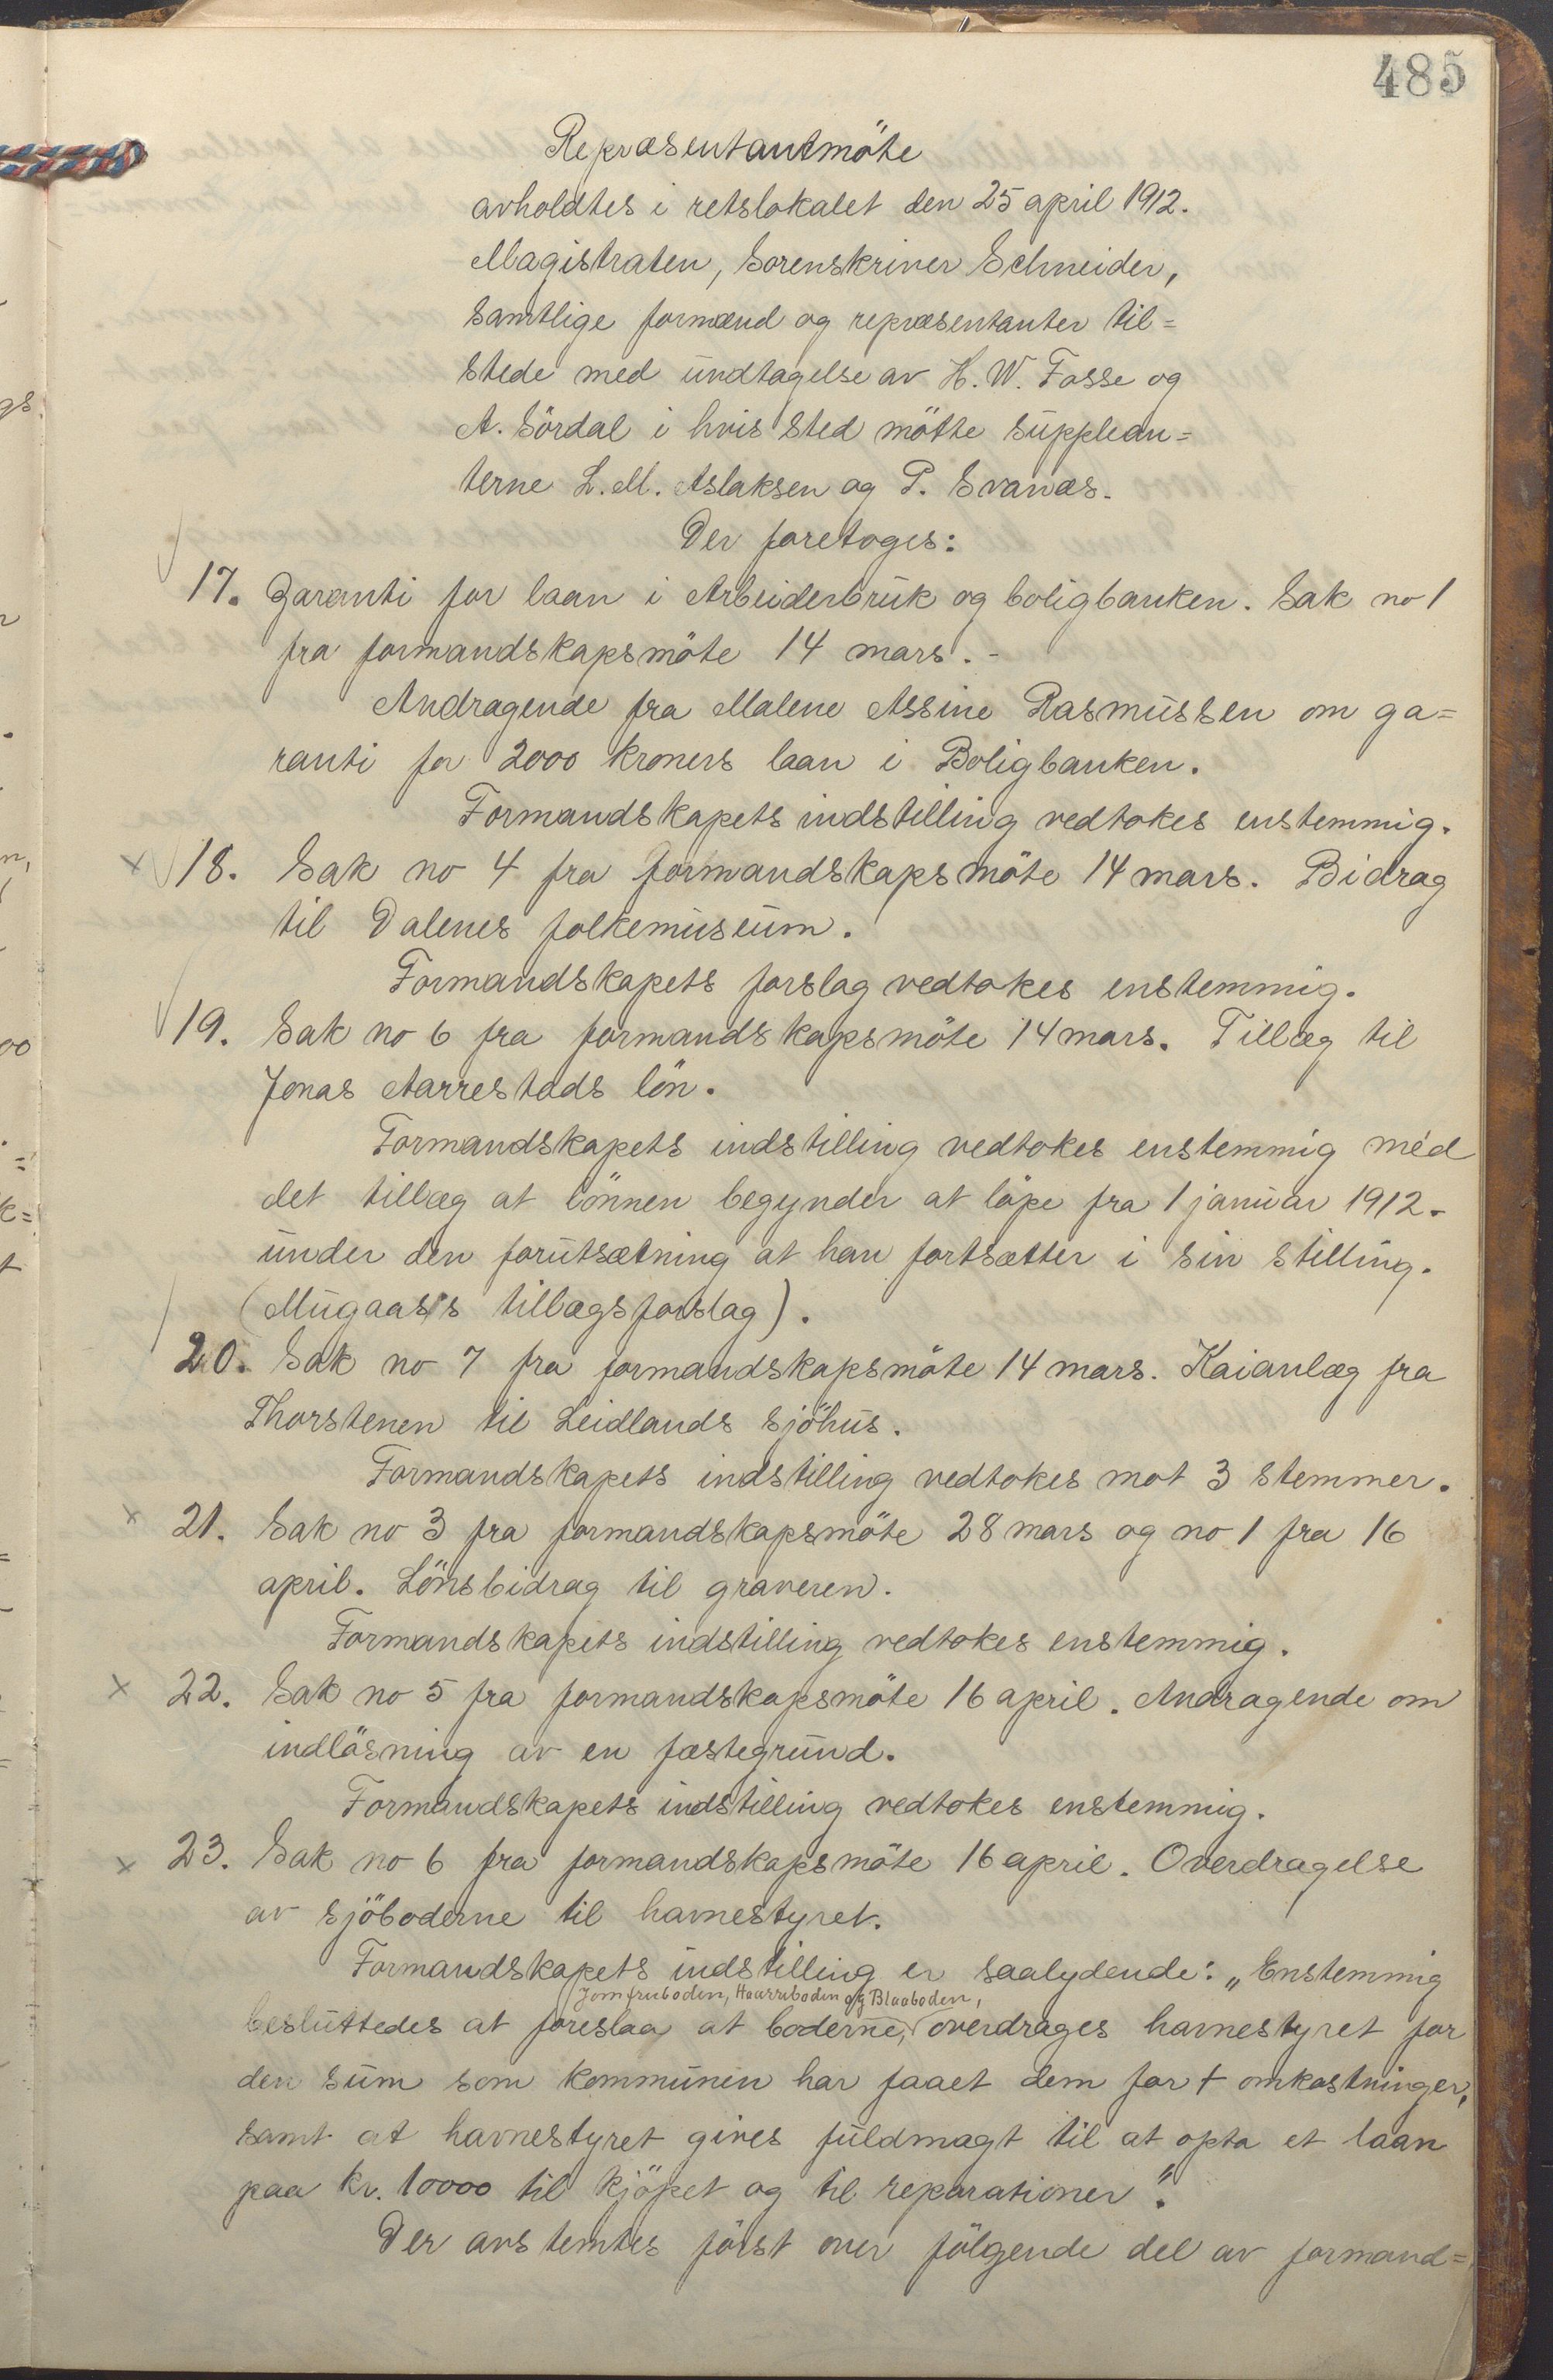 485
Repræsentantmöte
avholdtes i retslokalet den 25 april 1912.
Magistraten, Sorenskriver Schneider,
samtlige formænd og repræsentanter til=
stede med undtagelse av H. W. Fosse og
A. Sördal i hvis sted mötte supplean=
terne L. M. Aslaksen og P. Svanæs.
Der foretoges:
17. Garanti for laan i Arbeiderbruk og boligbanken. Sak no 1
fra formandskapsmöte 14 mars. -
Andragende fra Malene Assine Rasmussen om ga=
ranti for 2000 kroners laan i Boligbanken.
Formandskapets indstilling vedtokes enstemmig.
18. Sak no 4 fra formandskapsmöte 14 mars. Bidrag
til Dalenes folkemuseum.
Formandskapets forslag vedtokes enstemmig.
19. Sak no 6 fra formandskapsmöte 14 mars. Tillæg til
Jonas Aarrestads lön.
Formandskapets indstilling vedtokes enstemmig med
det tillæg at lönnen begynder at löpe fra 1 januar 1912.
under den forutsætning at han fortsætter i sin stilling.
(Mugaas's tillægsforslag).
20. Sak no 7 fra formandskapsmöte 14 mars. Kaianlæg fra
Thorstenen til Leidlands sjöhus.
Formandskapets indstilling vedtokes mot 3 stemmer.
21. Sak no 3 fra formandskapsmöte 28 mars og no 1 fra 16
april. Lönsbidrag til graveren.
Formandskapets indstilling vedtokes enstemmig.
22. Sak no 5 fra formandskapsmöte 16 april. Andragende om
indlösning av en fæstegrund.
Formandskapets indstilling vedtokes enstemmig.
23. Sak no 6 fra formandskapsmöte 16 april. Overdragelse
av sjöboderne til havnestyret.
Formandskapets indstilling er saalydende: „Enstemmig
Jomfruboden, Haarrboden og Blaaboden,
besluttedes at foreslaa at boderne, overdrages havnestyret for
den sum som kommunen har faaet dem for + omkostninger,
samt at havnestyret gives fuldmagt til at opta et laan
paa kr. 10000 til kjöpet og til reparationer".
Der avstemtes först over fölgende del av formand=